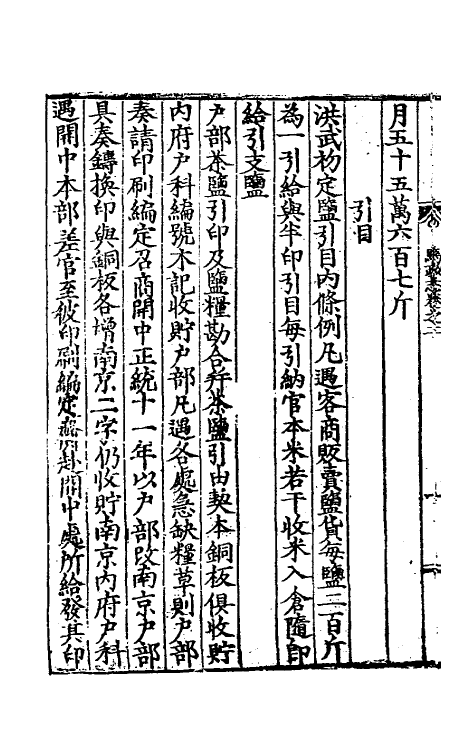 月五十五萬六百七斤
引目
洪武初定鹽引目內條例凡遇客商販賣鹽貨每鹽二百斤
為一引給與半印引目每引納官本米若干收米入倉隨即
給引支鹽
戶部茶鹽引印及鹽糧勘合并茶鹽引由契本銅板俱收貯
內府戶科編號木記收貯戶部凡遇各處急缺糧草則戶部
奏請印刷編定召商開中正統十一年以戶部改南京戶部
具奏鑄換印與銅板各增南京二字仍收貯南京內府戶科
遇開中本部差官至彼印刷編定齎赴開中處所給發其印